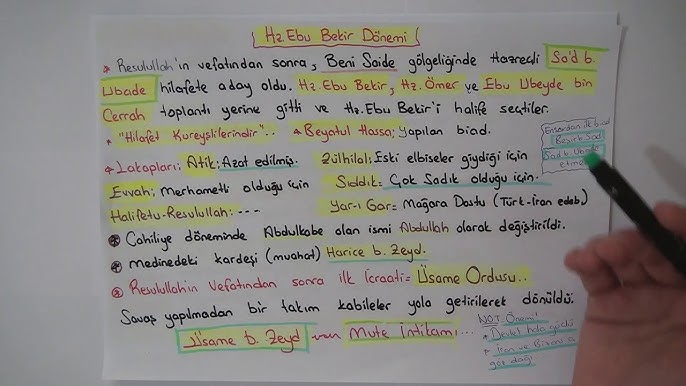 Hz. Ebu Bekir Dönemi
* Resulullah'ın vefatından sonra, Beni Saide gölgeliğinde Hazrecli Sa'd b.
Ubade hilafete aday oldu. Hz. Ebu Bekir, Hz. Ömer ve Ebu Ubeyde bin
Cerrah toplantı yerine gitti ve Hz. Ebu Bekir'i halife seçtiler.
* "Hilafet Kureyşlilerindir".. * Beyatul Hassa; Yapılan biad.
Ensardan ilk biad
Beşir b. Sad
Sad b. Ubade
etme
* Lakapları; Atik; Azat edilmiş. Zülhilal; Eski elbiseler giydiği için
Evvah; Merhametli olduğu için Sıddık: Çok Sadık olduğu için.
Halifetu-Resulullah: --- Yar-ı Gar= Mağara Dostu (Türk-İran edeb.)
* Cahiliye döneminde Abdulkabe olan ismi Abdullah olarak değiştirildi.
* Medinedeki kardeşi (muahat) Harice b. Zeyd.
* Resulullah'ın Vefatından sonra ilk İcraatı= Üsame Ordusu..
Savaş yapılmadan bir takım kabileler yola getirilerek dönüldü.
Üsame b. Zeyd Mute İntikamı...
NOT: Önemi!
* Devlet hala güçlü
* İran ve Bizans'a
göz dağı